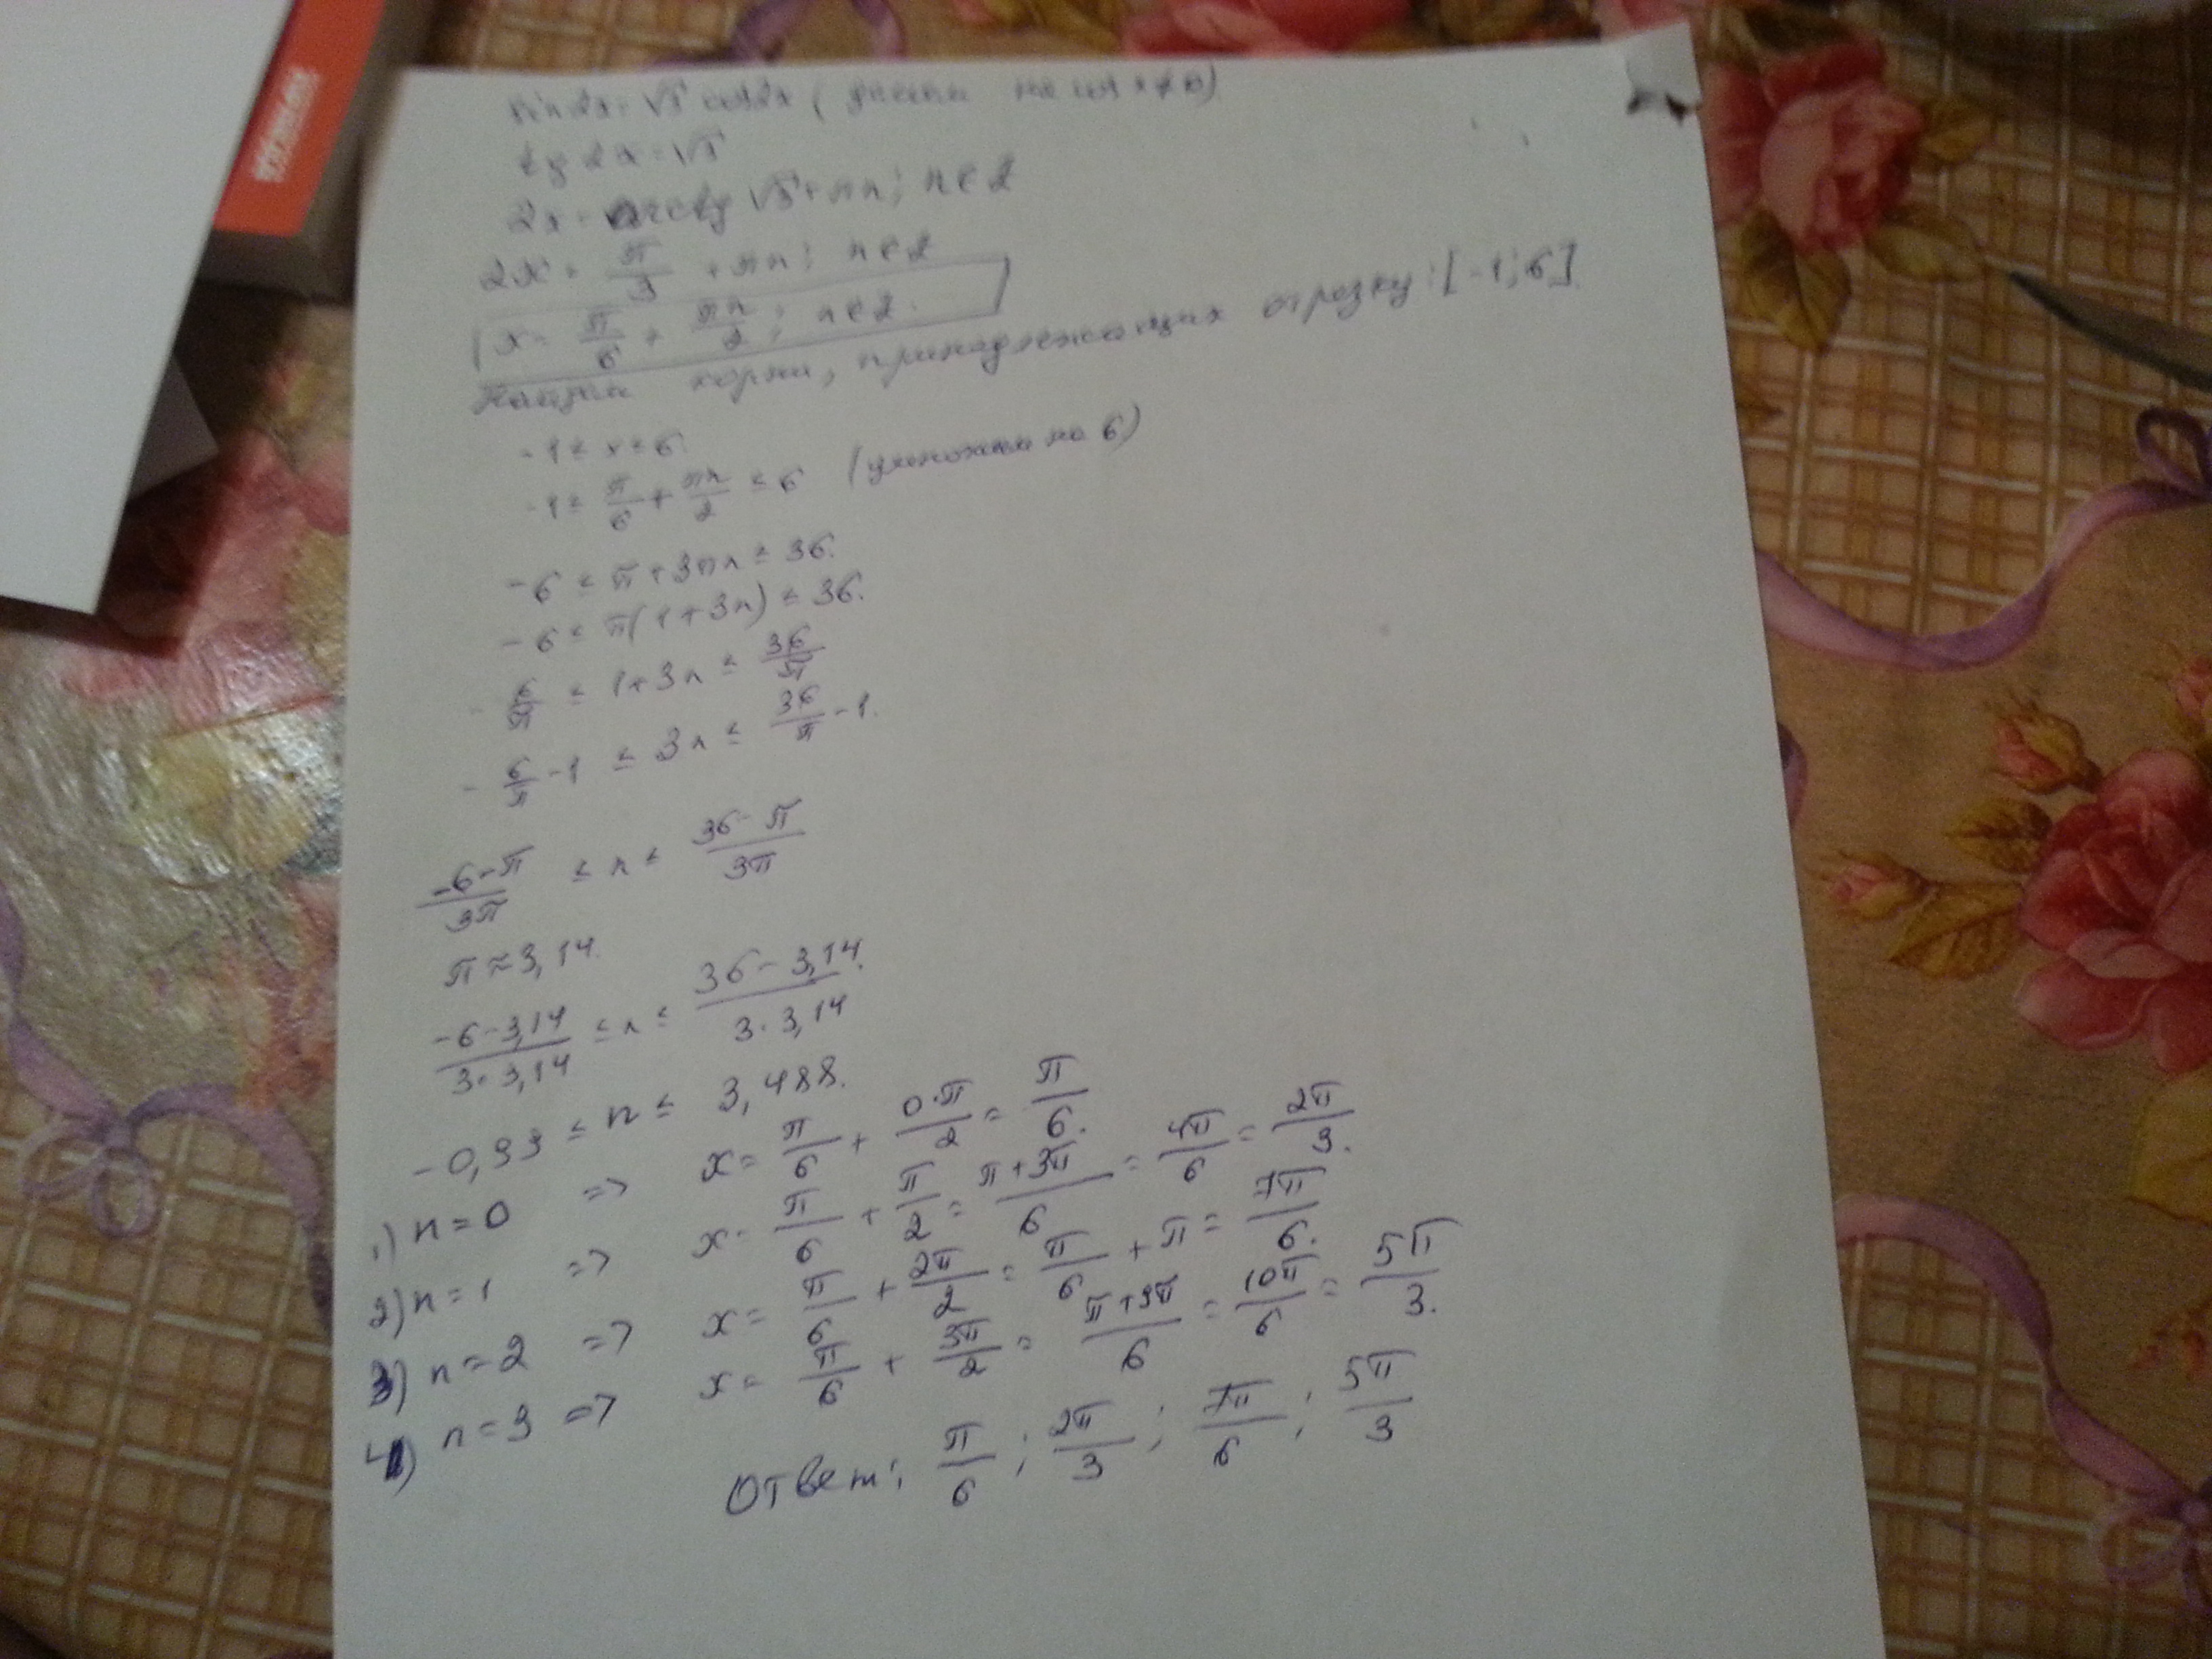 sin2x = √3 cos2x (делим на cos x ≠ 0)
tg 2x = √3
2x = arctg √3 + πn; n ∈ Z
2x = π/3 + πn; n ∈ Z
x = π/6 + πn/2; n ∈ Z.
Найдем корни, принадлежащих отрезку: [-1; 6].
-1 ≤ x ≤ 6.
-1 ≤ π/6 + πn/2 ≤ 6 (умножим на 6)
-6 ≤ π + 3πn ≤ 36.
-6 ≤ π(1 + 3n) ≤ 36.
-6/π ≤ 1 + 3n ≤ 36/π
-6/π - 1 ≤ 3n ≤ 36/π - 1.
(-6 - π)/3π ≤ n ≤ (36 - π)/3π
π ≈ 3,14.
(-6 - 3,14)/(3 · 3,14) ≤ n ≤ (36 - 3,14)/(3 · 3,14)
-0,93 ≤ n ≤ 3,488.
1) n = 0 => x = π/6 + 0·π/2 = π/6.
2) n = 1 => x = π/6 + π/2 = (π + 3π)/6 = 4π/6 = 2π/3.
3) n = 2 => x = π/6 + 2π/2 = π/6 + π = 7π/6.
4) n = 3 => x = π/6 + 3π/2 = (π + 9π)/6 = 10π/6 = 5π/3.
Ответ: π/6; 2π/3; 7π/6; 5π/3